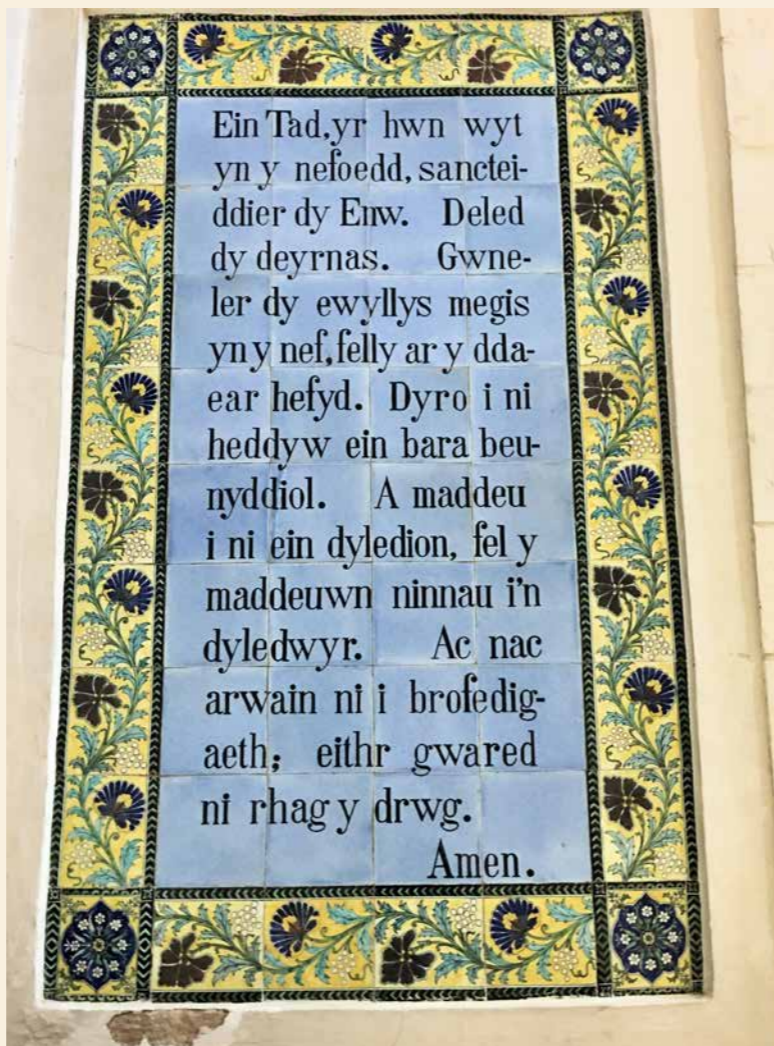 Ein Tad,yr hwn wyt
yn y nefoedd, sanctei-
ddier dy Enw. Deled
dy deyrnas. Gwne-
ler dy ewyllys megis
yn y nef, felly ar y dda-
ear hefyd. Dyro i ni
heddyw ein bara beu-
nyddiol. A maddeu
i ni ein dyledion, fel y
maddeuwn ninnau i'n
dyledwyr. Ac nac
arwain ni i brofedig-
aeth; eithr gwared
ni rhag y drwg.
Amen.